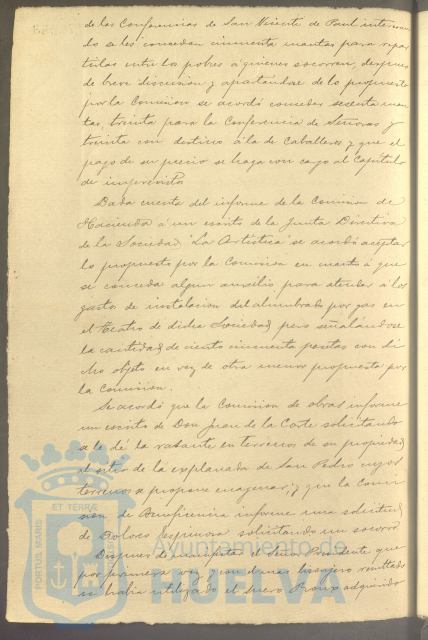 de las Conferencias de San Vicente de Paul interesan
do se les concedan cincuenta mantas para repar
tirlas entre los pobres á quienes socorren, despues
de breve discusion y apartandose de lo propuesto
por la Comision se acordó conceder sesenta man
tas, treinta para la Conferencia de Señoras y
treinta con destino á la de Caballeros y que el
pago de su precio se haga con cargo al Capitulo
de imprevistos
Dada cuenta del informe de la Comision de
Hacienda á un escrito de la Junta Directiva
de la Sociedad "La Artistica" se acordó aceptar
lo propuesto por la Comision en cuanto á que
se conceda algun auxilio para atender á los
gastos de instalacion del alumbrado por gas en
el teatro de dicha Sociedad, pero señalandose
la cantidad de ciento cincuenta pesetas con di
cho objeto en vez de otra menor propuesta por
la Comision.
Se acordó que la Comision de obras informe
un escrito de Don Juan de la Corte solicitando
se le dé la rasante en terrenos de su propiedad
al sitio de la explanada de San Pedro cuyos
terrenos se propone enagenar; y que la Comi
sion de Beneficencia informe una solicitud
de Dolores Espinosa solicitando un socorro
Despues de manifestar el Señor Presidente que
por primera vez y con buen lisonjero resultado
se habia utilizado el nuevo adquirido
ET TERRÆ
PORTUS MARIS
CUSTODIA
Ayuntamiento de
HUELVA